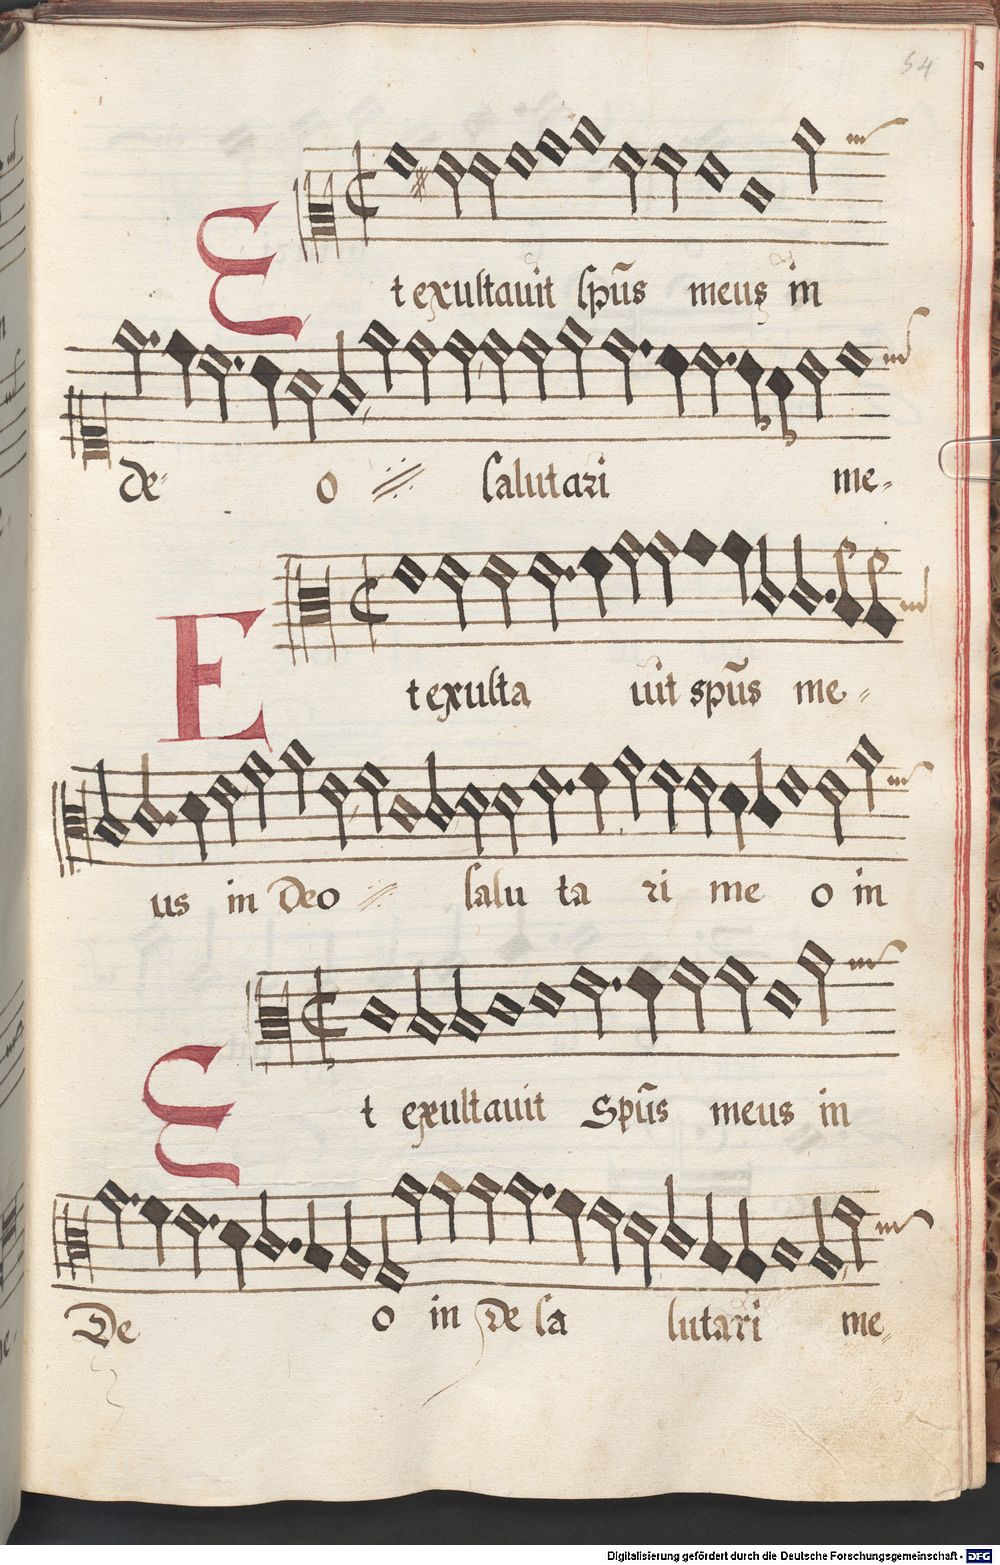 54
Et exultauit sp̃us meus in
de- o salutari me-
Et exulta uit sp̃us me-
us in Deo salu ta ri me o in
Et exultauit Sp̃us meus in
De o in de sa lutari me-
Digitalisierung gefördert durch die Deutsche Forschungsgemeinschaft - DFG